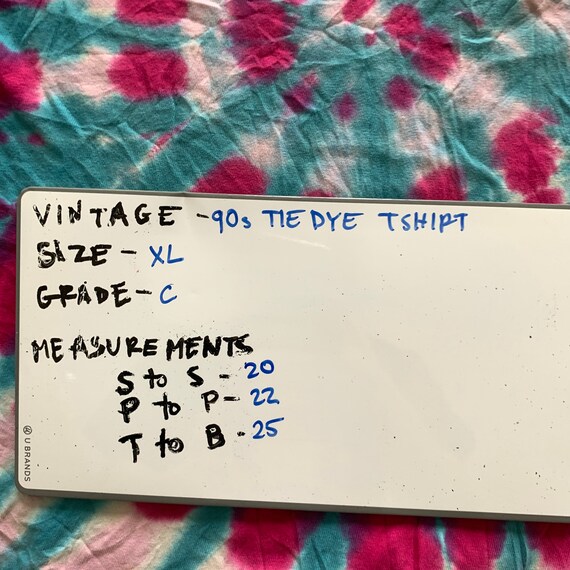 VINTAGE - 90s TIE DYE TSHIRT
SIZE - XL
GRADE - C
MEASUREMENTS
S to S - 20
P to P - 22
T to B - 25
U BRANDS